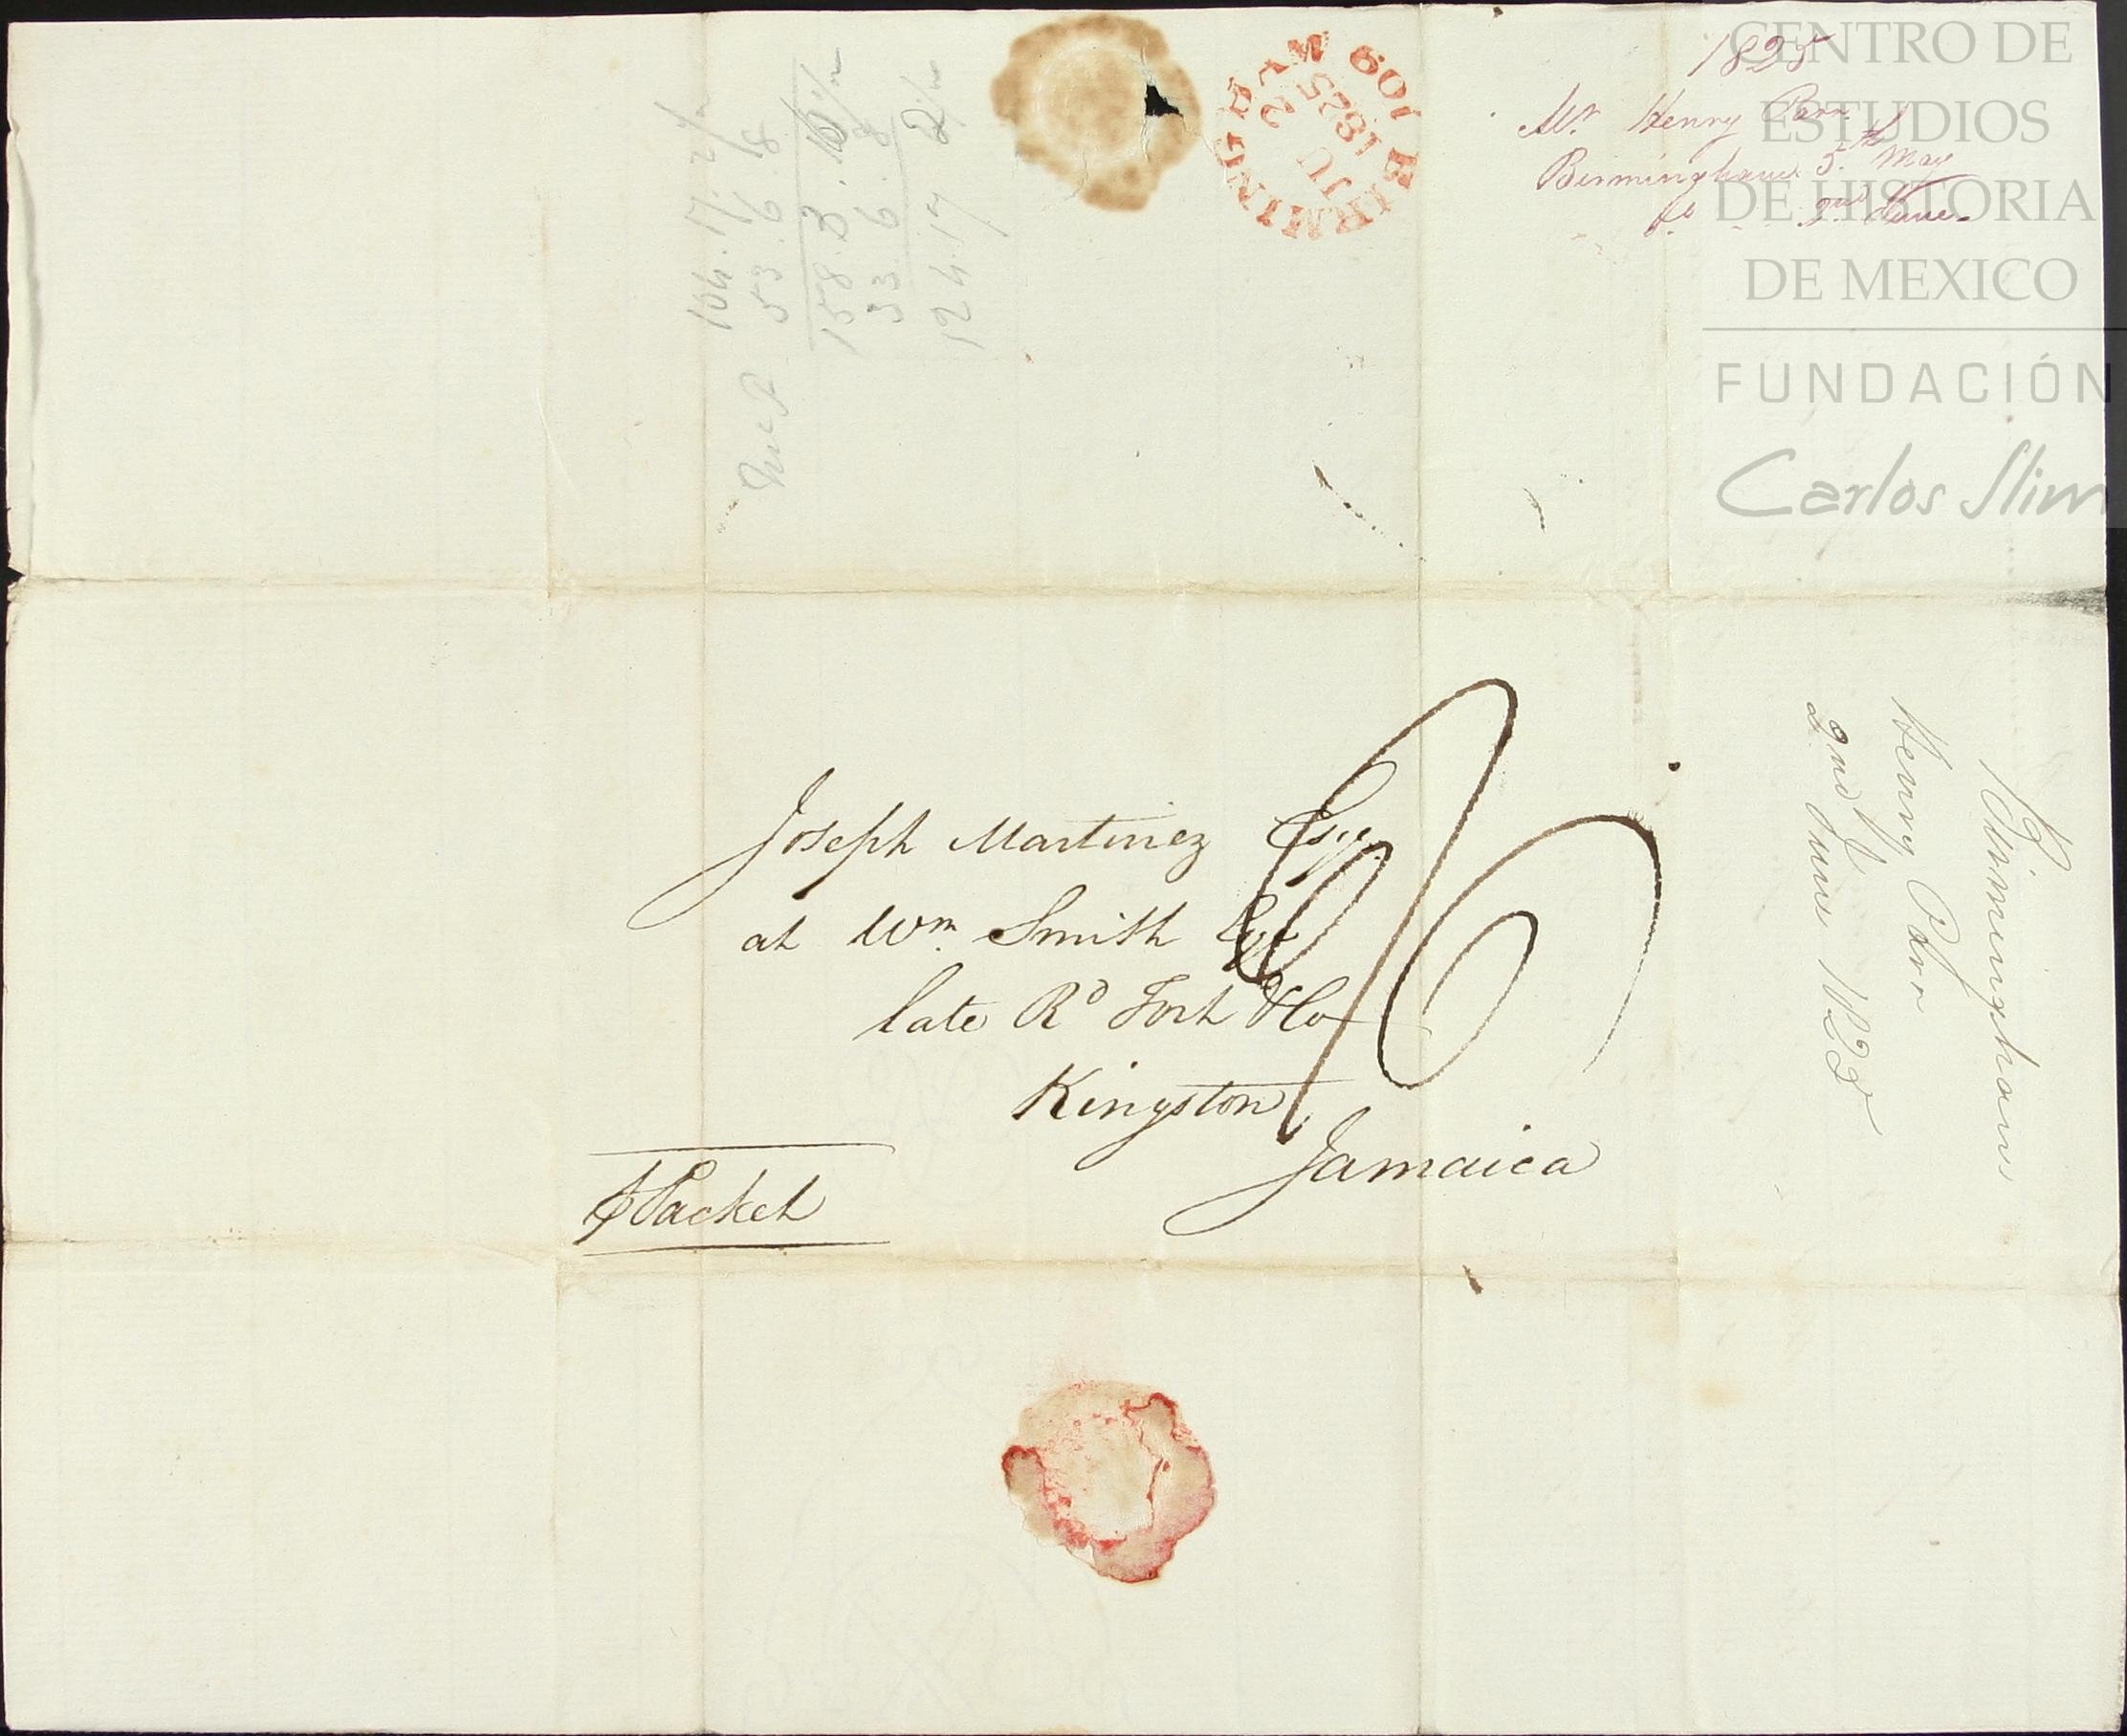 1825
Mr Henry Parr
Birmingham 5th May
do 2nd June
CENTRO DE
ESTUDIOS
DE HISTORIA
DE MEXICO
FUNDACIÓN
Carlos Slim
BIRMINGHAM
109
JU 2
1825
104.17.2½
53.6.8
158.3.10½
33.6.8
124.17.2½
Joseph Martinez Esqr
at Wm Smith Esqr
late Rd Fort & Co
Kingston
Jamaica
Packet
Birmingham
Henry Parr
2nd June 1825